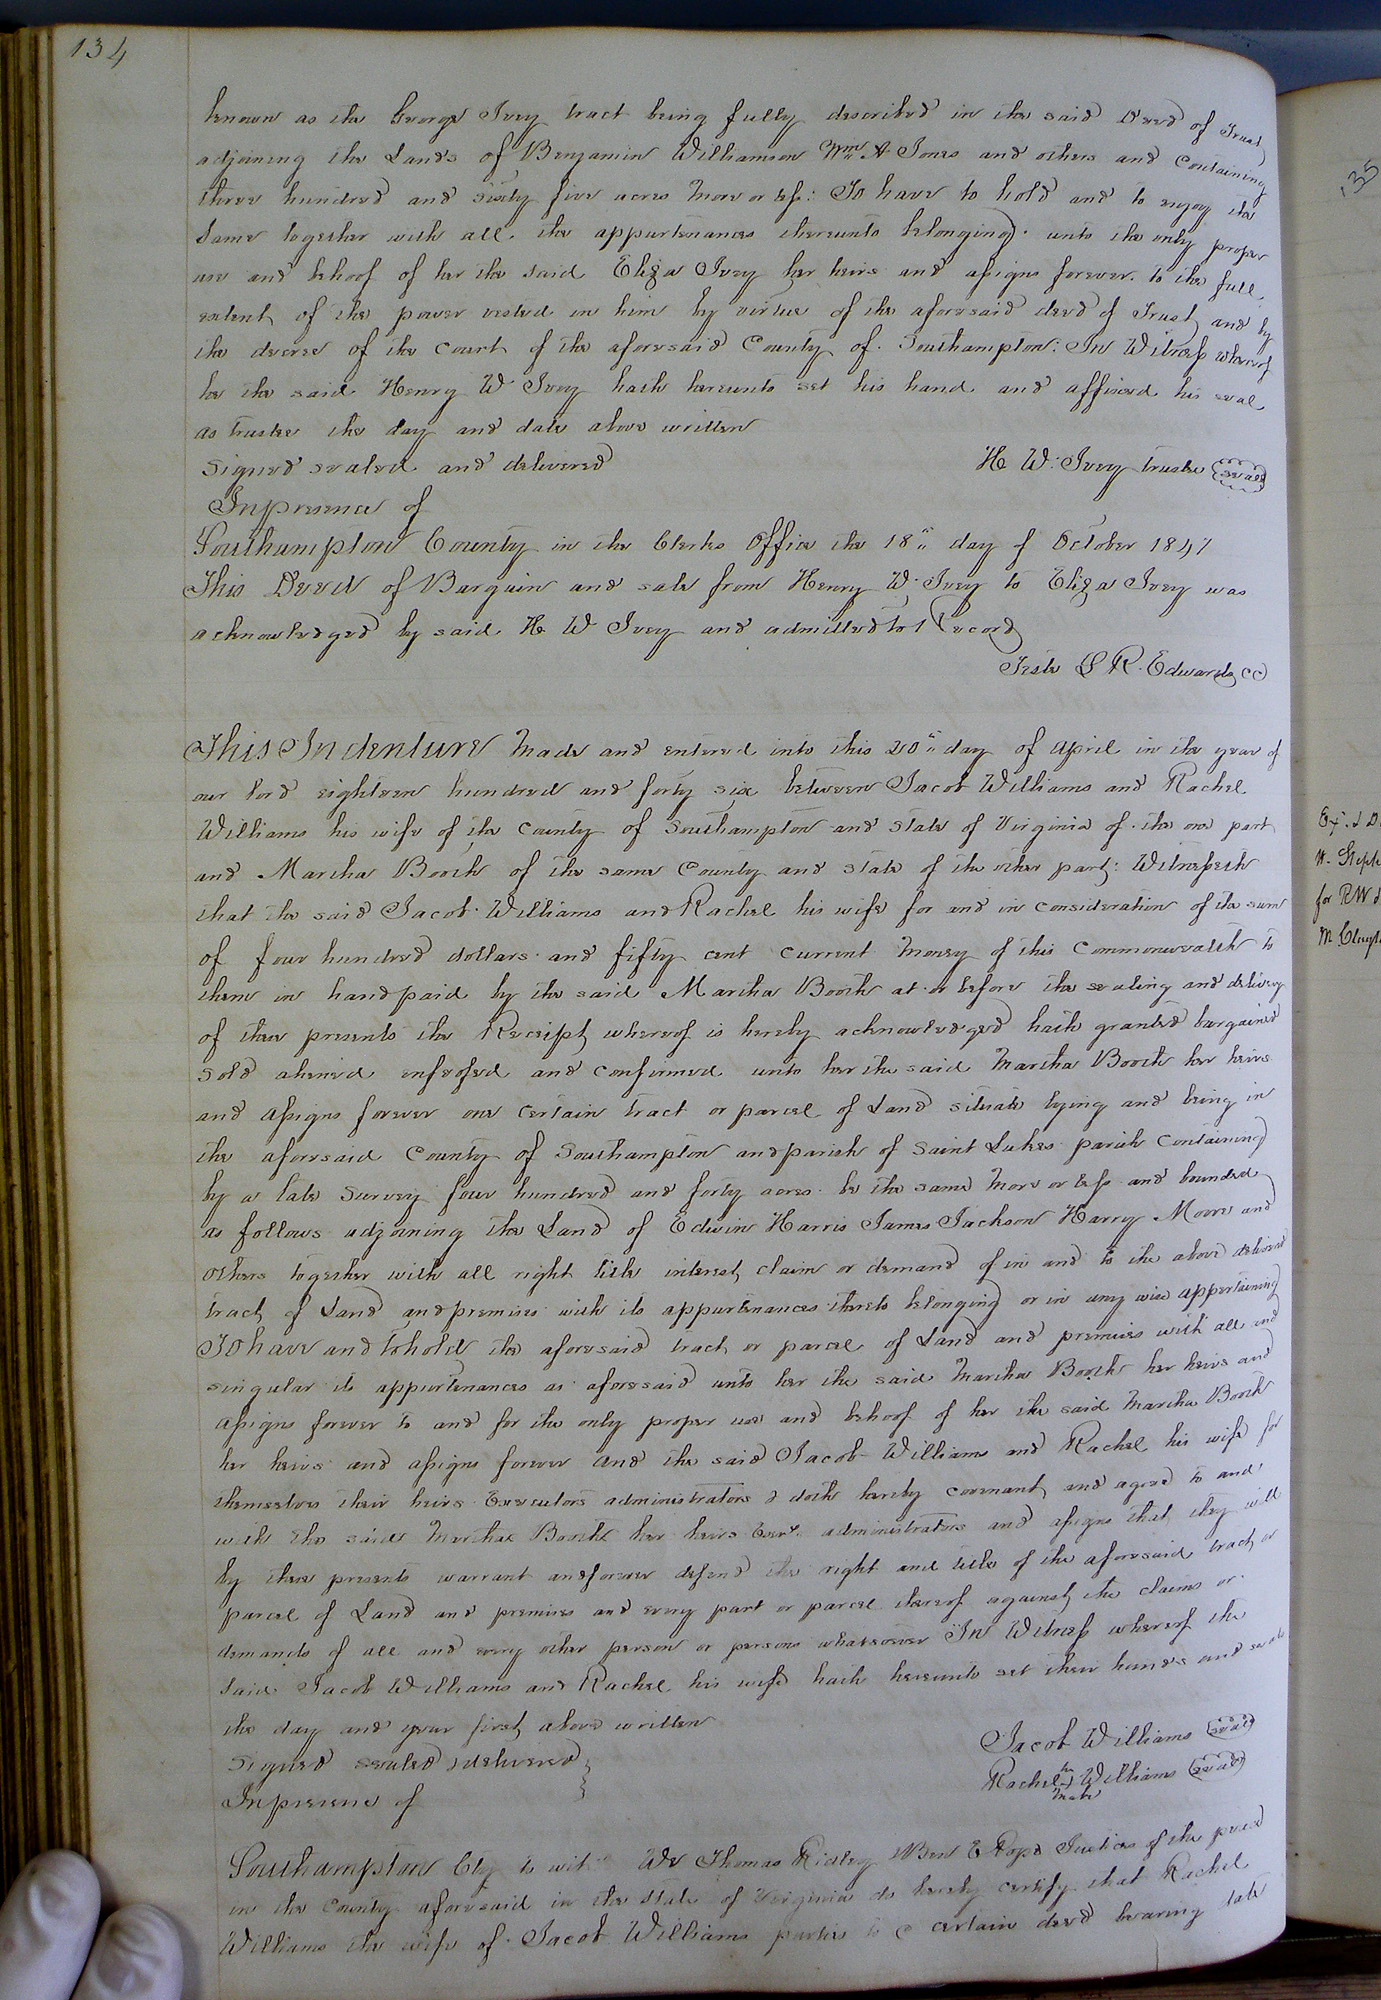 134
known as the George Ivey tract being fully described in the said Deed of Trust
adjoining the Lands of Benjamin Williamson Wm A Jones and others and Containing
three hundred and sixty five acres more or less: To have to hold and to enjoy the
same together with all the appurtenances thereunto belonging unto the only proper
use and behoof of her the said Eliza Ivey her heirs and assigns forever. to the full
extent of the power vested in him by virtue of the aforesaid deed of Trust and by
the decree of the Court of the aforesaid County of Southampton: In Witness whereof
he the said Henry W Ivey hath hereunto set his hand and affixed his seal
as trustee the day and date above written
Signed sealed and delivered
H W. Ivey trustee (seal)
In presence of
Southampton County in the Clerks Office the 18th day of October 1847
This Deed of Bargain and sale from Henry W. Ivey to Eliza Ivey was
acknowledged by said H W Ivey and admitted to Record
Teste L R. Edwards CC
This Indenture Made and entered into this 20th day of April in the year of
our lord eighteen hundred and forty six between Jacob Williams and Rachel
Williams his wife of the County of Southampton and State of Virginia of the one part
and Martha Booth of the same County and State of the other part: Witnesseth
that the said Jacob Williams and Rachel his wife for and in consideration of the sum
of four hundred dollars and fifty cent current money of this Commonwealth to
them in hand paid by the said Martha Booth at or before the sealing and delivery
of these presents the Receipt whereof is hereby acknowledged hath granted bargained
sold aliened enfeofed and confirmed unto her the said Martha Booth her heirs
and assigns forever one certain tract or parcel of Land situate lying and being in
the aforesaid County of Southampton and parish of Saint Lukes parish Containing
by a late Survey four hundred and forty acres be the same more or less and bounded
as follows adjoining the Land of Edwin Harris James Jackson Harry Moore and
others together with all right title interest claim or demand of in and to the above
tract of Land and premises with its appurtenances thereto belonging or in any wise appertaining
To have and to hold the aforesaid tract or parcel of Land and premises with all and
singular its appurtenances as aforesaid unto her the said Martha Booth her heirs and
assigns forever to and for the only proper use and behoof of her the said Martha Booth
her heirs and assigns forever and the said Jacob Williams and Rachel his wife for
themselves their heirs Executors administrators & doth hereby covenant and agree to and
with the said Martha Booth her heirs Exrs administrators and assigns that they will
by these presents warrant and forever defend the right and title of the aforesaid tract or
parcel of Land and premises and every part or parcel thereof against the claims or
demands of all and every other person or persons whatsoever In Witness whereof the
said Jacob Williams and Rachel his wife hath hereunto set their hands and seals
the day and year first above written
Signed sealed delivered
In presence of
Jacob Williams (seal)
her
Rachel + Williams (seal)
mark
Southampton Cty to wit We Thomas Ridley Ben E Pope Justices of the peace
in the County aforesaid in the State of Virginia do hereby certify that Rachel
Williams the wife of Jacob Williams parties to a certain deed bearing date
135
for RW